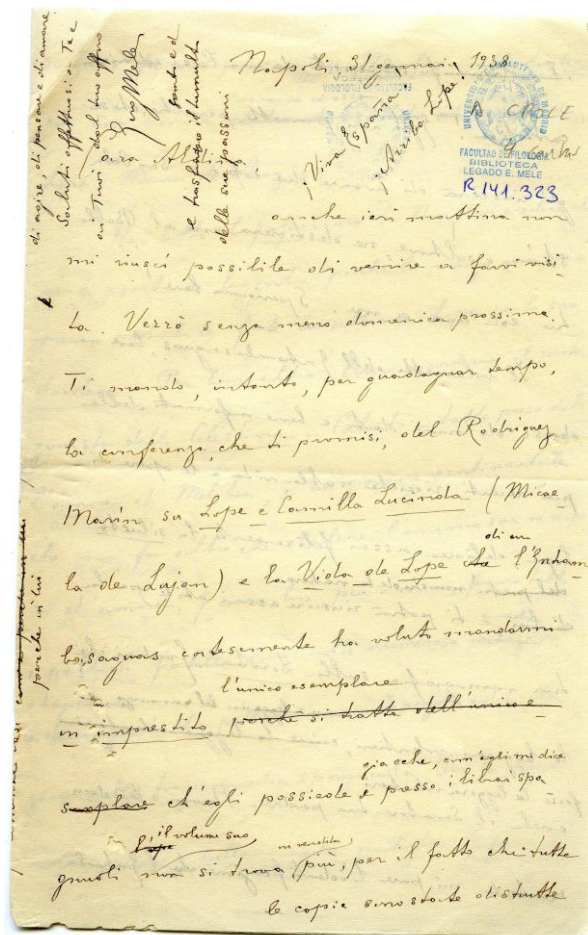 Napoli 31 gennaio 1938
¡Viva España!
¡Arriba Lope!
FACULTAD DE FILOLOGIA
BIBLIOTECA
LEGADO E. MELE
R 141.323
Caro
anche ieri mattina non
mi riuscì possibile di venire a farvi visi-
ta. Verrò senza meno domenica prossima.
Ti mando, intanto, per guadagnar tempo,
la conferenza, che ti promisi, del Rodríguez
Marín su Lope e Camilla Lucinda (Micae-
di cui
la de Lujan) e la Vida de Lope l'Entram
basaguas cortesemente ha voluto mandarmi
l'unico esemplare
in imprestito perchè si tratta dell'unico e-
giacchè, com'egli mi dice
semplare ch'egli possiede e presso i librai spa
il volume suo
in vendita
gnuoli non si trova più, per il fatto che tutte
le copie sono state distrutte
perchè in lui
di agire, di pensare e di amare.
Saluti affettuosi a Te e
ai Tuoi dal tuo aff.mo
Mele
e trasfuso il tumulto
delle sue passioni